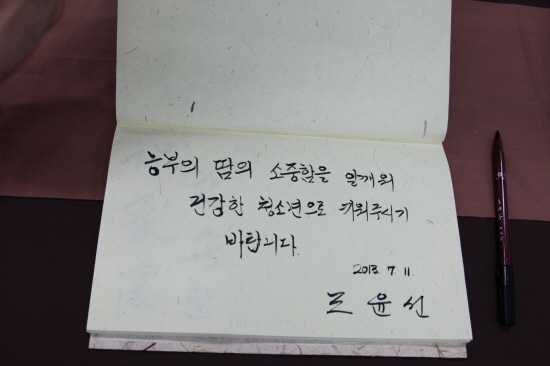 농부의 땀의 소중함을 일깨워
건강한 청소년으로 키워주시기
바랍니다.
2013. 7. 11.
조 윤 선